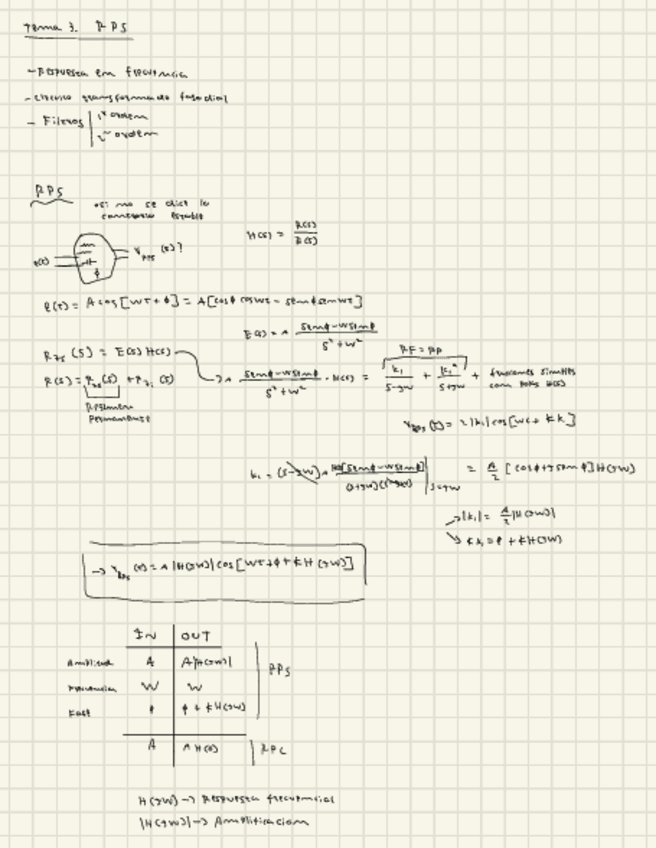 Tema 3. RPS
- Respuesta en frecuencia
- Circuito transformado fasorial
- Filtros | 1er orden
2º orden
RPS
si no se dice lo
contrario estable
e(t)
v_RPS(t)?
H(s) = R(s)/E(s)
e(t) = A cos[wt + ϕ] = A[cosϕ coswt - senϕ senwt]
E(s) = A
s² + w²
R_zs(s) = E(s) H(s)
R(s) = R_zs(s) + R_zi(s)
Régimen
Permanente
s² + w²
· H(s) = k₁/(s-jw) + k₁*/(s+jw) + fracciones simples
con polos H(s)
v_RPS(t) = 2|k₁|cos[wt + ∡k₁]
k₁ = (s-jw) A
| s=jw = A/2 [cosϕ + j senϕ] H(jw)
→ |k₁| = A/2 |H(jw)|
↘ ∡k₁ = ϕ + ∡H(jw)
→ v_RPS(t) = A |H(jw)| cos[wt + ϕ + ∡H(jw)]
IN OUT
Amplitud A A|H(jw)|
Frecuencia W W
Fase ϕ ϕ + ∡H(jw)
RPS
A A H(0) | RPC
H(jw) → Respuesta frecuencial
|H(jw)| → Amplificación